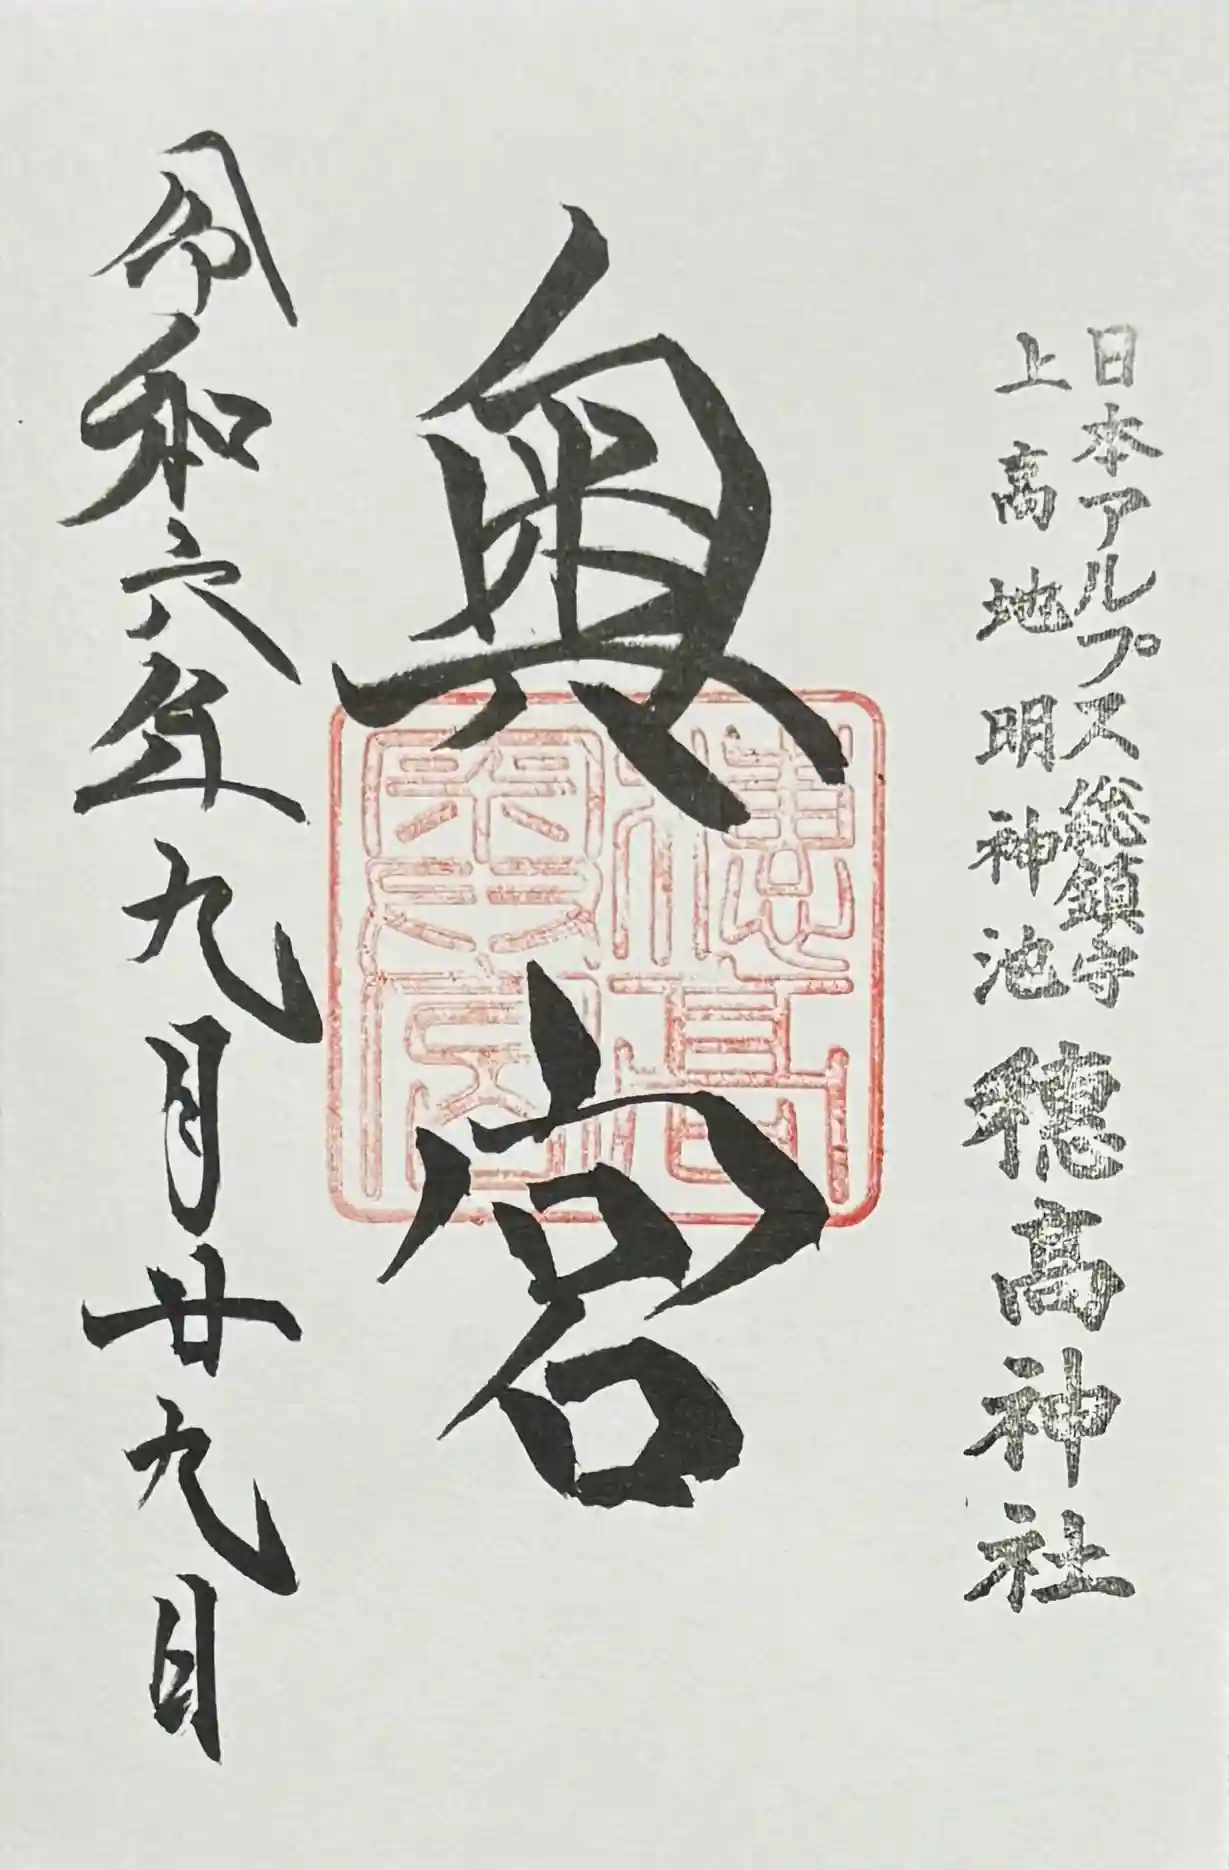 日本アルプス総鎮守
上高地明神池
穂髙神社
奥宮
穂高
奥宮
令和六年九月廿九日